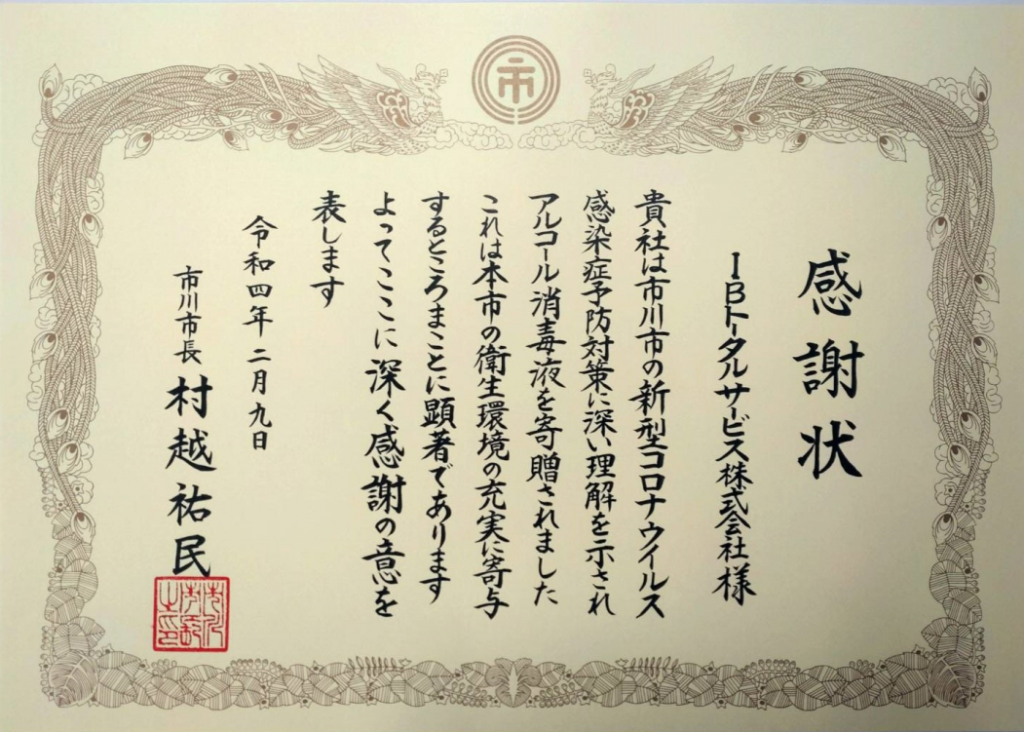 市
感謝状
IBトータルサービス株式会社 様
貴社は市川市の新型コロナウイルス
感染症予防対策に深い理解を示され
アルコール消毒液を寄贈されました
これは本市の衛生環境の充実に寄与
するところまことに顕著であります
よってここに深く感謝の意を
表します
令和四年二月九日
市川市長 村越祐民